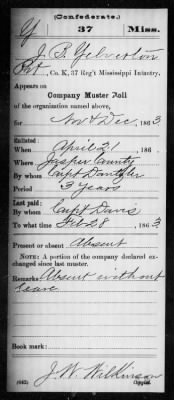 (Confederate.)
Y 37 Miss.
J. B. Yelverton
Pvt, Co. K, 37 Reg't Mississippi Infantry.
Appears on
Company Muster Roll
of the organization named above,
for Nov & Dec, 1863
Enlisted:
When April 21, 186
Where Jasper County
By whom Capt Dantzler
Period 3 years
Last paid:
By whom Capt Davis
To what time Feb 28, 1863
Present or absent Absent
NOTE: A portion of the company declared ex-
changed since last muster.
Remarks: Absent without
leave
Book mark:
J. W. Wilkinson
(642) Copyist.